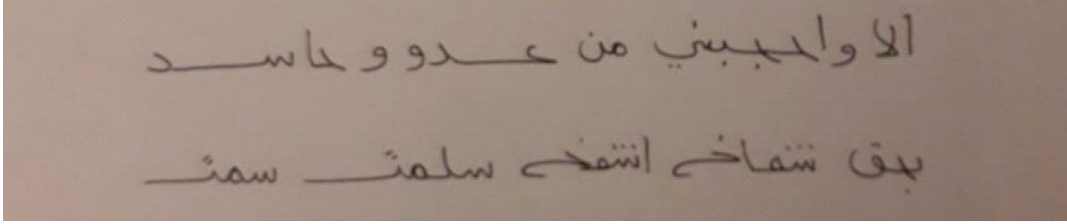 الا واحجبني من عدو وحاسد
بحق شماخ اشمخ سلمت سمت